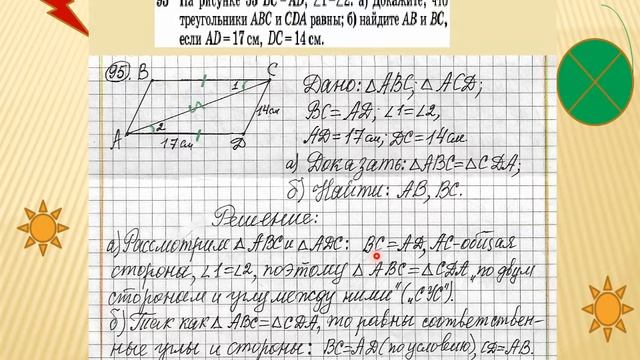 95 На рисунке 53 BC=AD, ∠1=∠2. а) Докажите, что
треугольники ABC и CDA равны; б) найдите AB и BC,
если AD = 17 см, DC = 14 см.
95.
B
C
1
14см
2
A
17см
D
Дано: △ABC; △ACD;
BC=AD; ∠1=∠2,
AD=17см; DC=14см.
а) Доказать: △ABC=△CDA;
б) Найти: AB, BC.
Решение:
а) Рассмотрим △ABC и △ADC: BC=AD, AC-общая
сторона, ∠1=∠2, поэтому △ABC=△CDA „по двум
сторонам и углу между ними" („СУС").
б) Так как △ABC=△CDA, то равны соответствен-
ные углы и стороны: BC=AD (по условию), CD=AB.